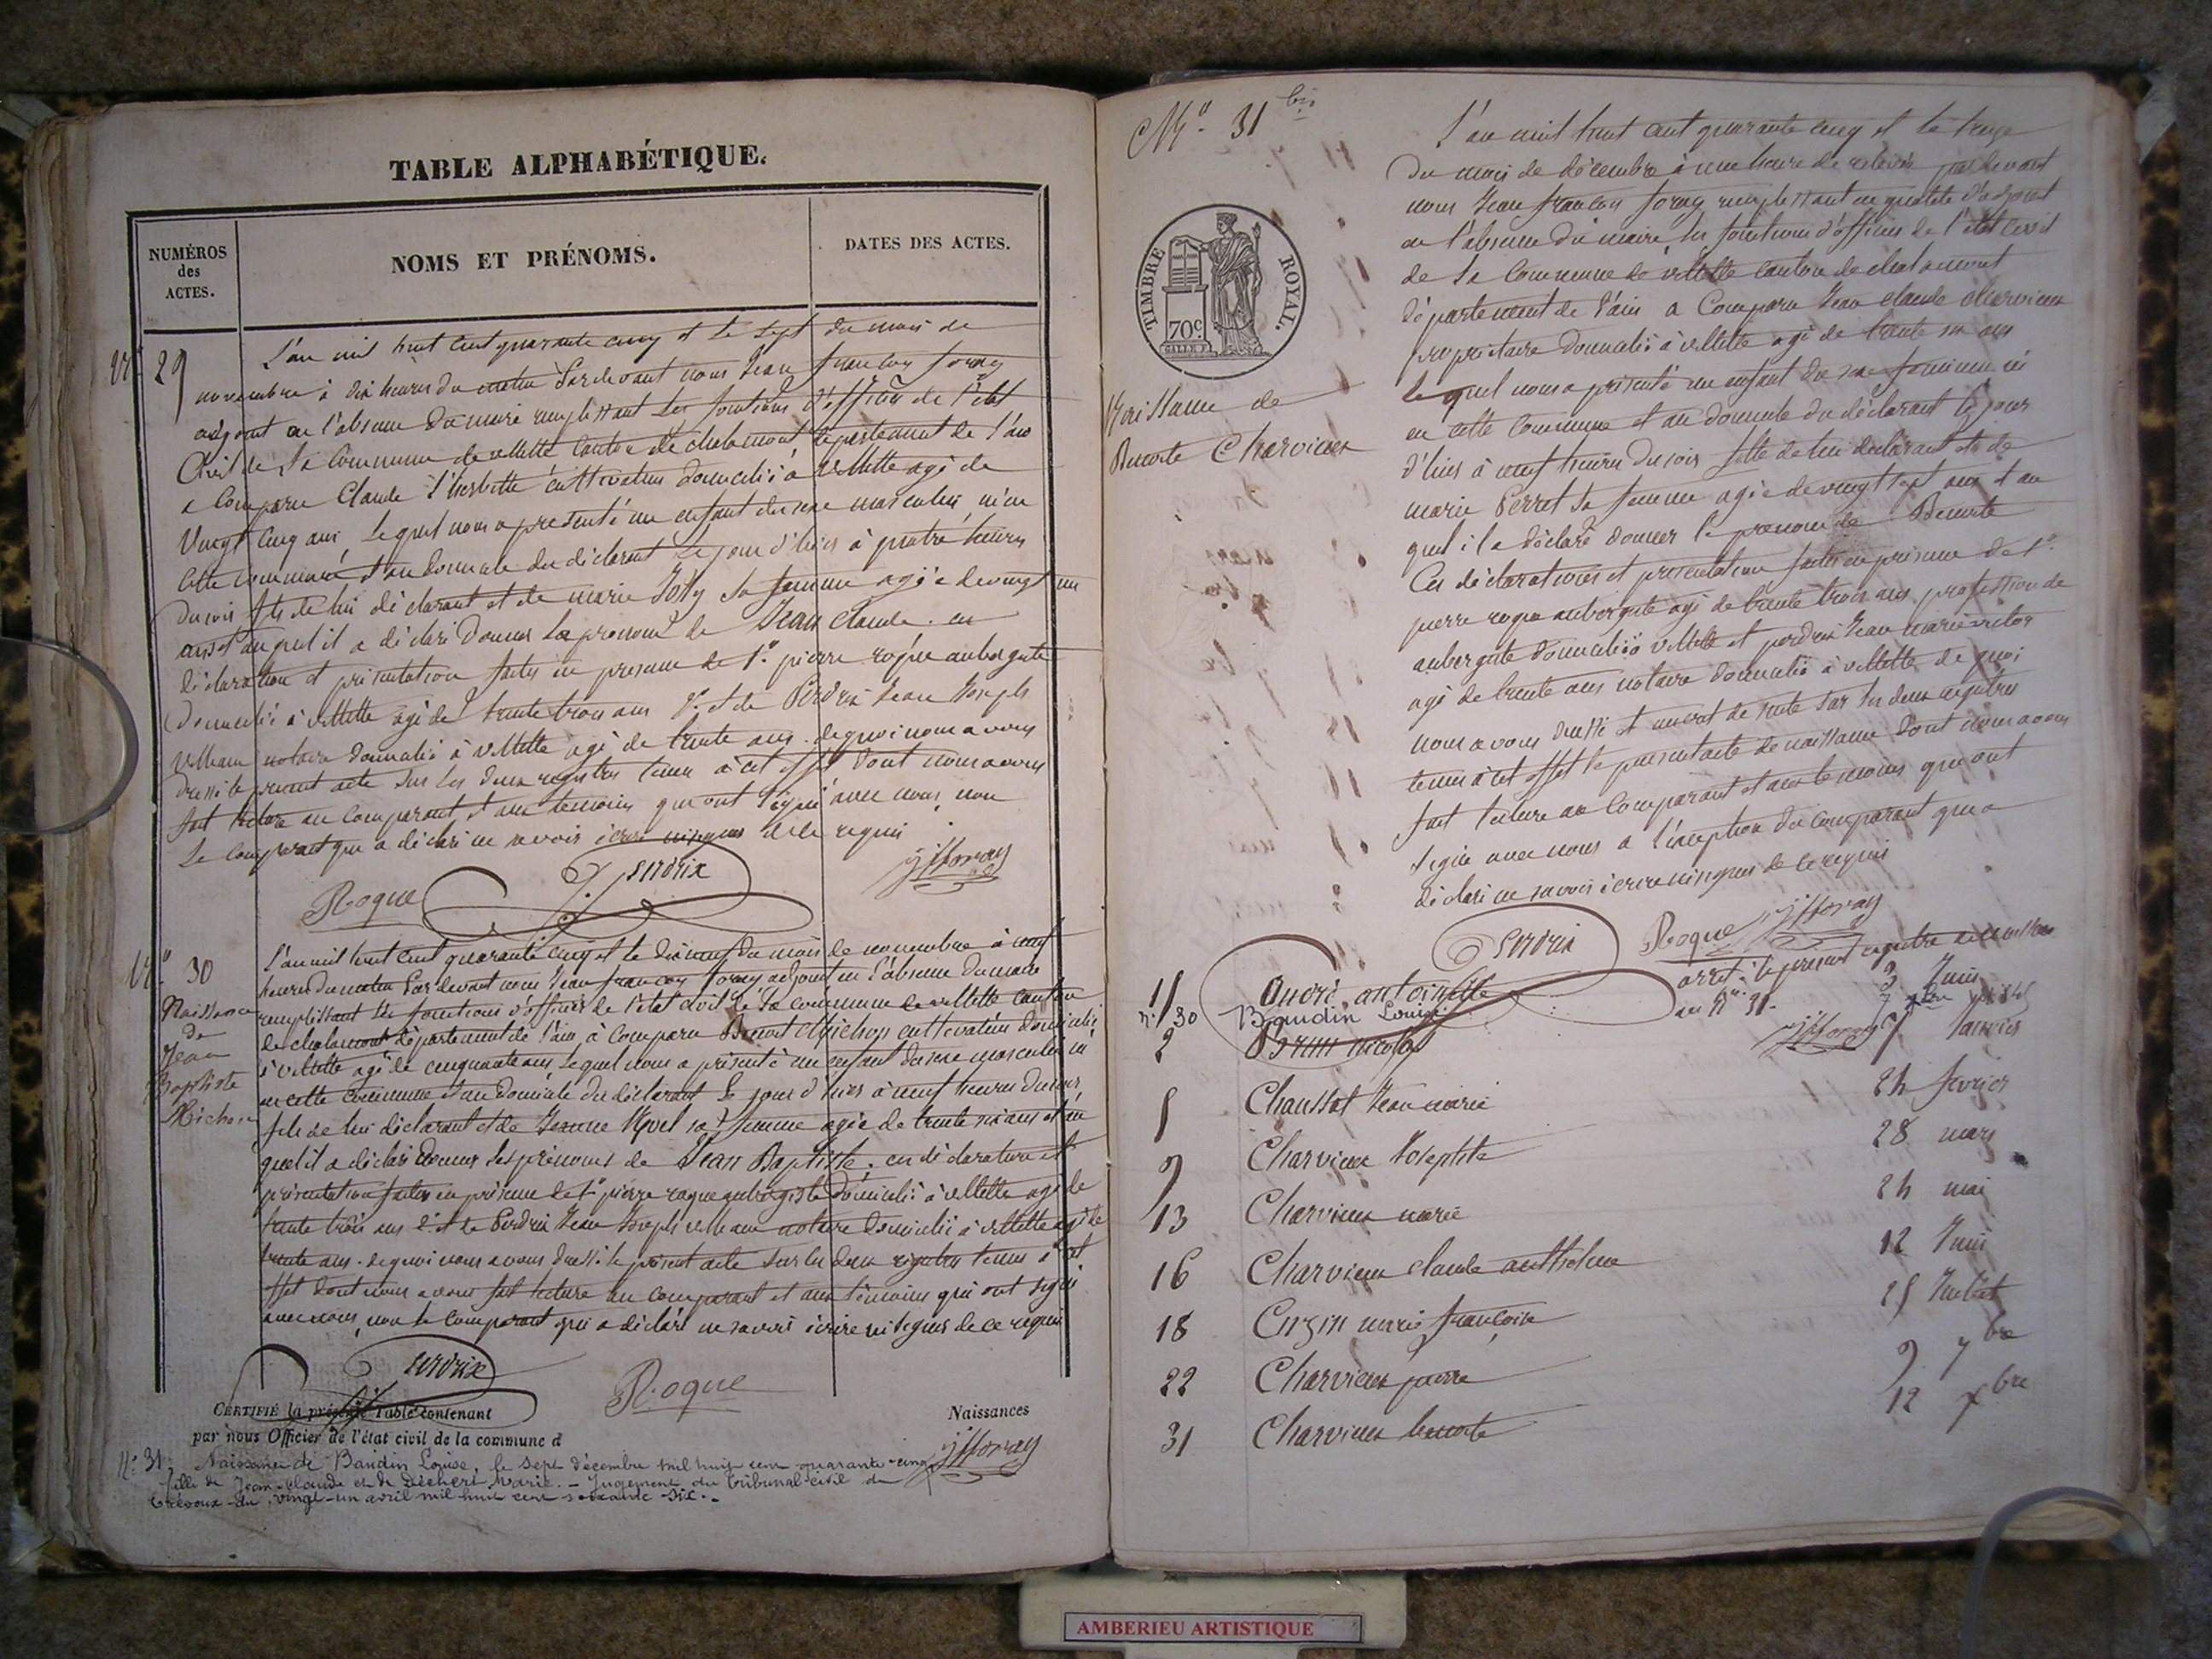 TABLE ALPHABÉTIQUE.
NUMÉROS
des
ACTES.
NOMS ET PRÉNOMS.
DATES DES ACTES.
N° 29
L'an mil huit cent quarante cinq et le sept du mois de
novembre à dix heures du matin Pardevant nous Jean françois foray
adjoint en l'absence du maire remplissant les fonctions d'officier de l'état
Civil de la Commune de villette Canton de chalamont département de l'ain
a Comparu Claude cultivateur domicilié à villette agé de
Vingt Cinq ans, lequel nous a presenté un enfant du sexe masculin né en
Cette commune et au domicile du déclarant le jour d'hier à quatre heures
du soir fils de lui déclarant et de marie sa femme agée de vingt un
ans et auquel il a déclaré donner le prenom de Jean Claude. ces
déclaration et présentation faites en presence de 1° pierre roque aubergiste
domicilié à villette agé de trente trois ans 2° et de Perdrix Jean Joseph
notaire domicilié à villette agé de trente ans. de quoi nous avons
dressé le présent acte sur les deux registres tenus à cet effet dont nous avons
fait lecture au comparant et aux temoins qui ont signé avec nous, non
le comparant qui a déclaré ne savoir écrire ni signer de ce requis
Roque Perdrix jfforay
N° 30
Naissance
de
Jean
Baptiste
Michon
L'an mil huit cent quarante cinq et le dix neuf du mois de novembre à neuf
heures du matin Pardevant nous Jean françois foray adjoint en l'absence du maire
remplissant les fonctions d'officier de l'état civil de la commune de villette canton
de chalamont département de l'ain, a comparu Benoit Michon cultivateur domicilié
à villette agé de cinquante ans, lequel nous a présenté un enfant du sexe masculin né
en cette commune et au domicile du déclarant le jour d'hier à neuf heures du soir
fils de lui déclarant et de Jeanne sa femme agée de trente six ans et au
quel il a déclaré donner les prénoms de Jean Baptiste. ces déclaration et
présentation faites en présence de 1° pierre roque aubergiste domicilié à villette agé de
trente trois ans 2° et de Perdrix Jean Joseph notaire domicilié à villette agé de
trente ans. de quoi nous avons dressé le présent acte sur les deux registres tenus à cet
effet dont nous avons fait lecture au comparant et aux témoins qui ont signé
avec nous, non le comparant qui a déclaré ne savoir écrire ni signer de ce requis
Perdrix Roque
CERTIFIÉ la présente Table contenant Naissances
par nous Officier de l'état civil de la commune d
jfforay
N° 31. Naissance de Baudin Louise, le sept décembre mil huit cent quarante-cinq
fille de Jean-Claude et de Marie. - Jugement du tribunal civil de
Trévoux du vingt-un avril mil huit cent soixante-six.
N° 31 bis
TIMBRE ROYAL.
70c
Naissance de
Benoite Charvieux
L'an mil huit cent quarante cinq et le treize
du mois de décembre à une heure de relevée pardevant
nous Jean françois foray remplissant en qualité d'adjoint
en l'absence du maire les fonctions d'officier de l'état Civil
de la Commune de villette Canton de chalamont
département de l'ain a Comparu Jean claude charvieux
propriétaire domicilié à villette agé de trente six ans
lequel nous a présenté un enfant du sexe féminin né
en cette Commune et au domicile du déclarant le jour
d'hier à neuf heures du soir fille de lui déclarant et de
marie Perret sa femme agée de vingt sept ans et au
quel il a déclaré donner le prenom de Benoite
Ces déclarations et présentation faites en présence de 1°
pierre roque aubergiste agé de trente trois ans profession de
aubergiste domicilié à villette et perdrix Jean marie victor
agé de trente ans notaire domicilié à villette de quoi
nous avons dressé et de suite sur les deux registres
tenus à cet effet le présent acte de naissance dont nous avons
fait lecture au Comparant et aux temoins qui ont
signé avec nous à l'exception du comparant qui a
déclaré ne savoir écrire ni signer de ce requis
Perdrix Roque jfforay
arrêté le présent registre
au N° 31.
jfforay
11 antoinette 3 Juin
n° 30 Baudin Louise 7
2 Brun nicolas 7 Janvier
5 Chaussat Jean marie 24 fevrier
9 Charvieux Josephte 28 mars
13 Charvieux marie 24 mai
16 Charvieux claude anthelme 12 Juin
18 marie françoise 25 Juillet
22 Charvieux pierre 9 7bre
31 Charvieux benoite 12 xbre
AMBERIEU ARTISTIQUE